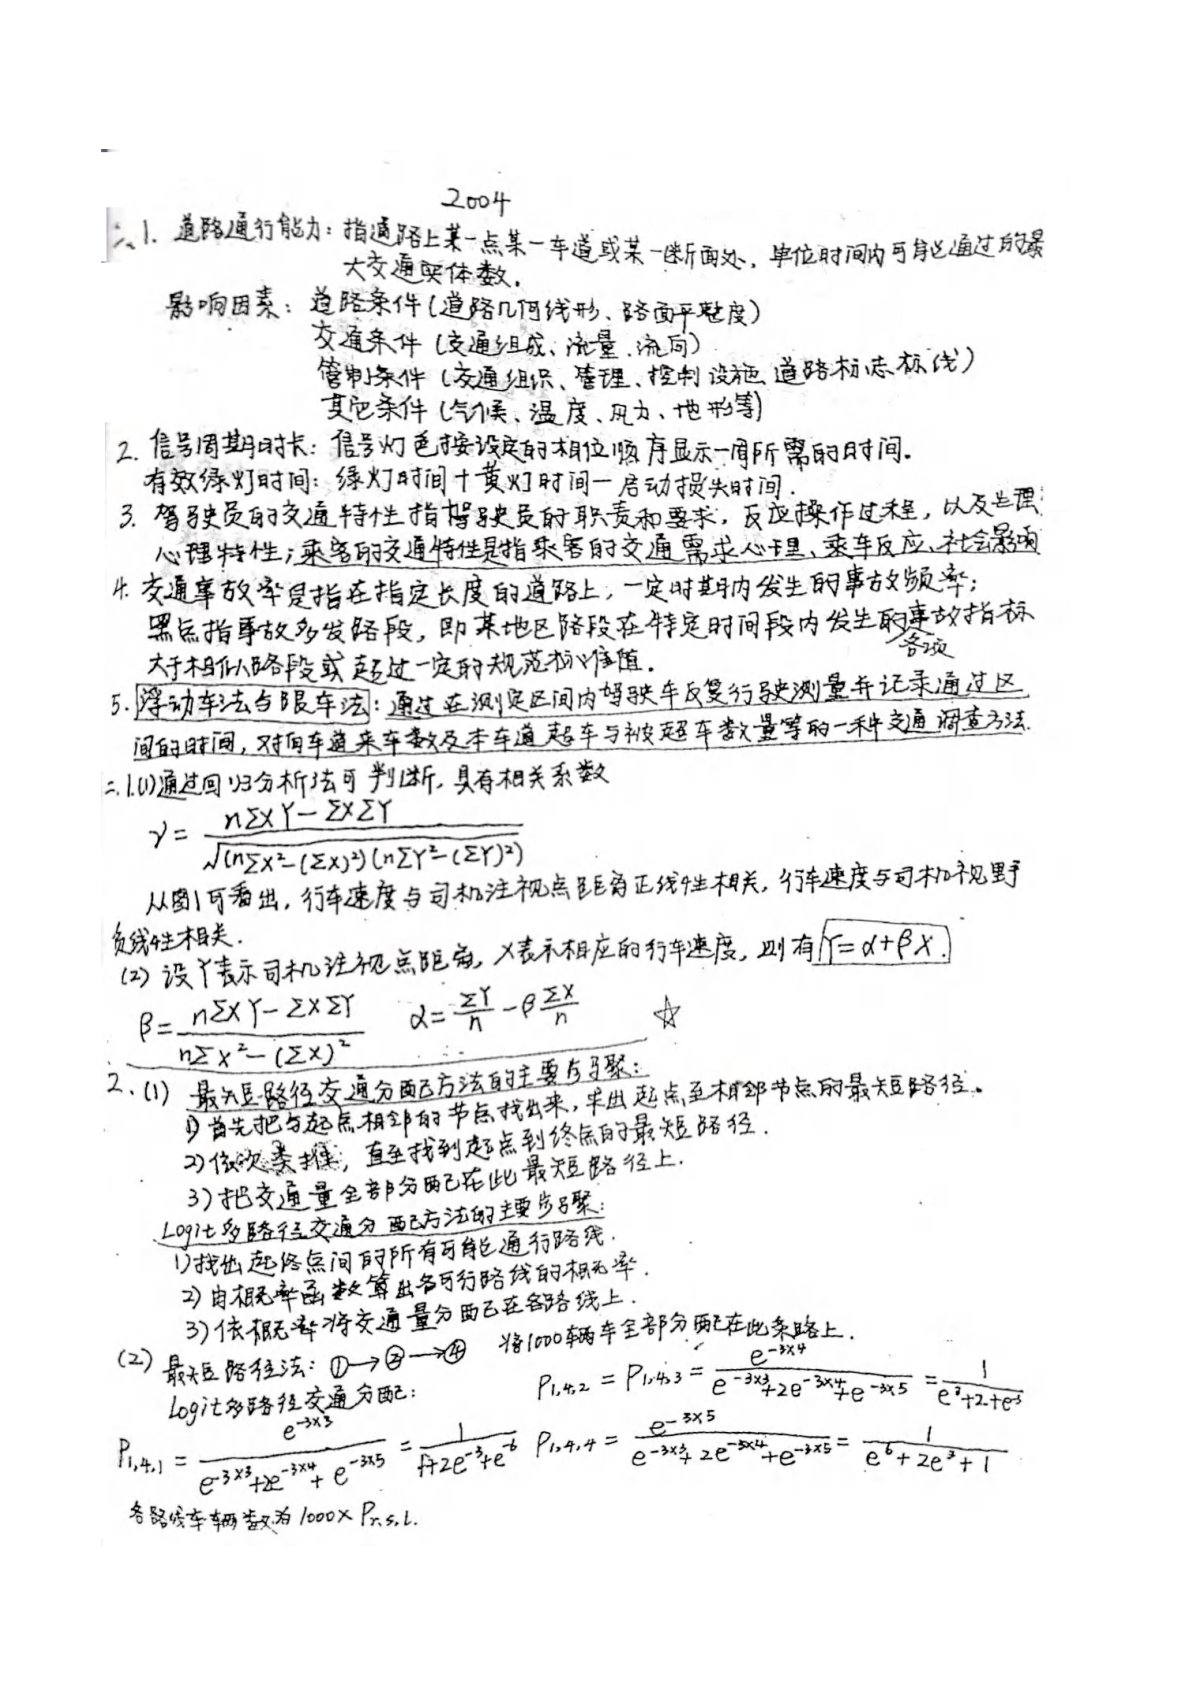 2004
一、1. 道路通行能力：指道路上某一点某一车道或某一断面处，单位时间内可能通过的最
大交通实体数.
影响因素：道路条件（道路几何线形、路面平整度）
交通条件（交通组成、流量、流向）
管制条件（交通组织、管理、控制设施、道路标志标线）
其它条件（气候、温度、风力、地形等）
2. 信号周期时长：信号灯色按设定的相位顺序显示一周所需的时间.
有效绿灯时间：绿灯时间+黄灯时间－启动损失时间.
3. 驾驶员的交通特性指驾驶员的职责和要求，反应操作过程，以及生理
心理特性；乘客的交通特性是指乘客的交通需求心理、乘车反应、社会影响
4. 交通事故率是指在指定长度的道路上，一定时期内发生的事故频率；
黑点指事故多发路段，即某地区路段在特定时间段内发生的事故指标
各项
大于相似路段或超过一定的规范标准值.
5. 浮动车法与跟车法：通过在测定区间内驾驶车反复行驶测量并记录通过区
间的时间，对向车道来车数及本车道超车与被超车数量等的一种交通调查方法.
二、1.(1)通过回归分析法可判断，具有相关系数
γ = (nΣXY－ΣXΣY) / √((nΣX²－(ΣX)²)(nΣY²－(ΣY)²))
从图1可看出，行车速度与司机注视点距离正线性相关，行车速度与司机视野
负线性相关.
(2) 设Y表示司机注视点距离，X表示相应的行车速度，则有 Y=α+βX.
β = (nΣXY－ΣXΣY) / (nΣX²－(ΣX)²) α = ΣY/n －β ΣX/n ☆
2. (1) 最短路径交通分配方法的主要步骤：
1) 首先把与起点相邻的节点找出来，求出起点至相邻节点的最短路径.
2) 依次类推，直至找到起点到终点的最短路径.
3) 把交通量全部分配在此最短路径上.
Logit多路径交通分配方法的主要步骤：
1) 找出起终点间的所有可能通行路线.
2) 由概率函数算出各可行路线的概率.
3) 依概率将交通量分配在各路线上.
(2) 最短路径法：①→③→④ 将1000辆车全部分配在此条路上.
Logit多路径交通分配：
P1,4,2 = P1,4,3 = e^(-3×4) / (e^(-3×3)+2e^(-3×4)+e^(-3×5)) = 1 / (e^3+2+e^-3)
P1,4,1 = e^(-3×3) / (e^(-3×3)+2e^(-3×4)+e^(-3×5)) = 1 / (1+2e^-3+e^-6) P1,4,4 = e^(-3×5) / (e^(-3×3)+2e^(-3×4)+e^(-3×5)) = 1 / (e^6+2e^3+1)
各路线车辆数为1000×Pr.s.i.